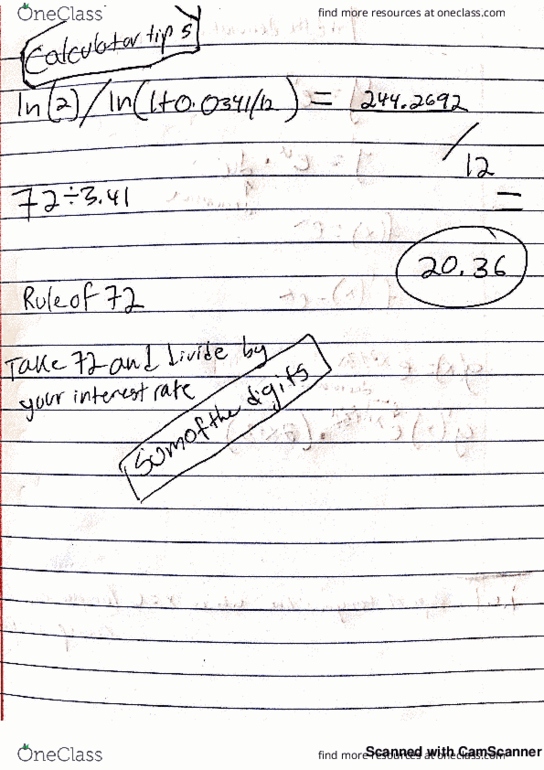 OneClass
find more resources at oneclass.com
Calculator tips
ln(2)/ln(1+0.0341/12) = 244.2692
/12
=
72÷3.41
20.36
Rule of 72
Take 72 and divide by
your interest rate
Sum of the digits
OneClass
find more resources at oneclass.com
Scanned with CamScanner